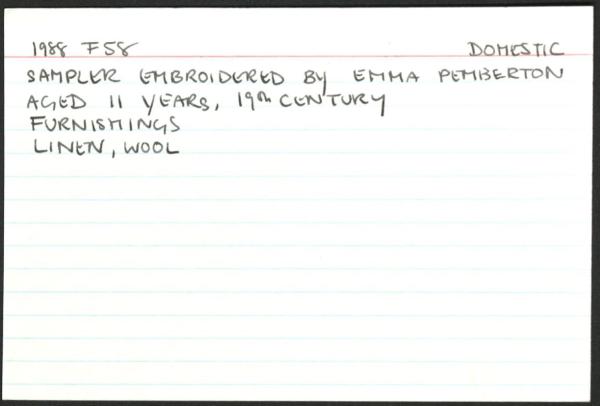 1988 F58 DOMESTIC
SAMPLER EMBROIDERED BY EMMA PEMBERTON
AGED 11 YEARS, 19th CENTURY
FURNISHINGS
LINEN, WOOL